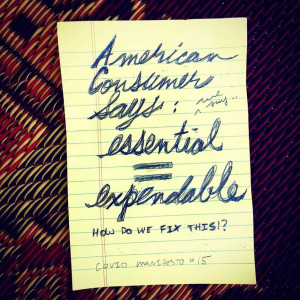 American
Consumer
says: we say..
essential
=
expendable
HOW DO WE FIX THIS!?
COVID MANIFESTO #15